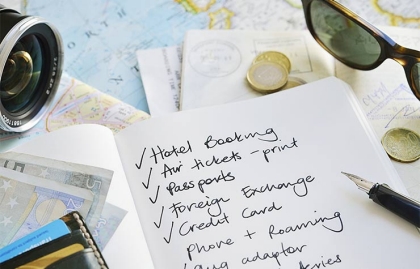 NORTH
✓ Hotel Booking
✓ Air tickets - print
✓ Passports
✓ Foreign Exchange
✓ Credit Card
Phone + Roaming
adaptor
5